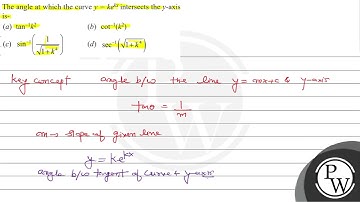 The angle at which the curve y = ke^{kx} intersects the y-axis
is-
(a) tan⁻¹k² (b) cot⁻¹(k²)
(c) sin⁻¹(1/√(1+k⁴)) (d) sec⁻¹(√(1+k⁴))
Key concept angle b/w the line y = mx+c & y-axis
tanθ = 1/m
m → slope of given line
y = ke^{kx}
angle b/w tangent of curve & y-axis
P
W